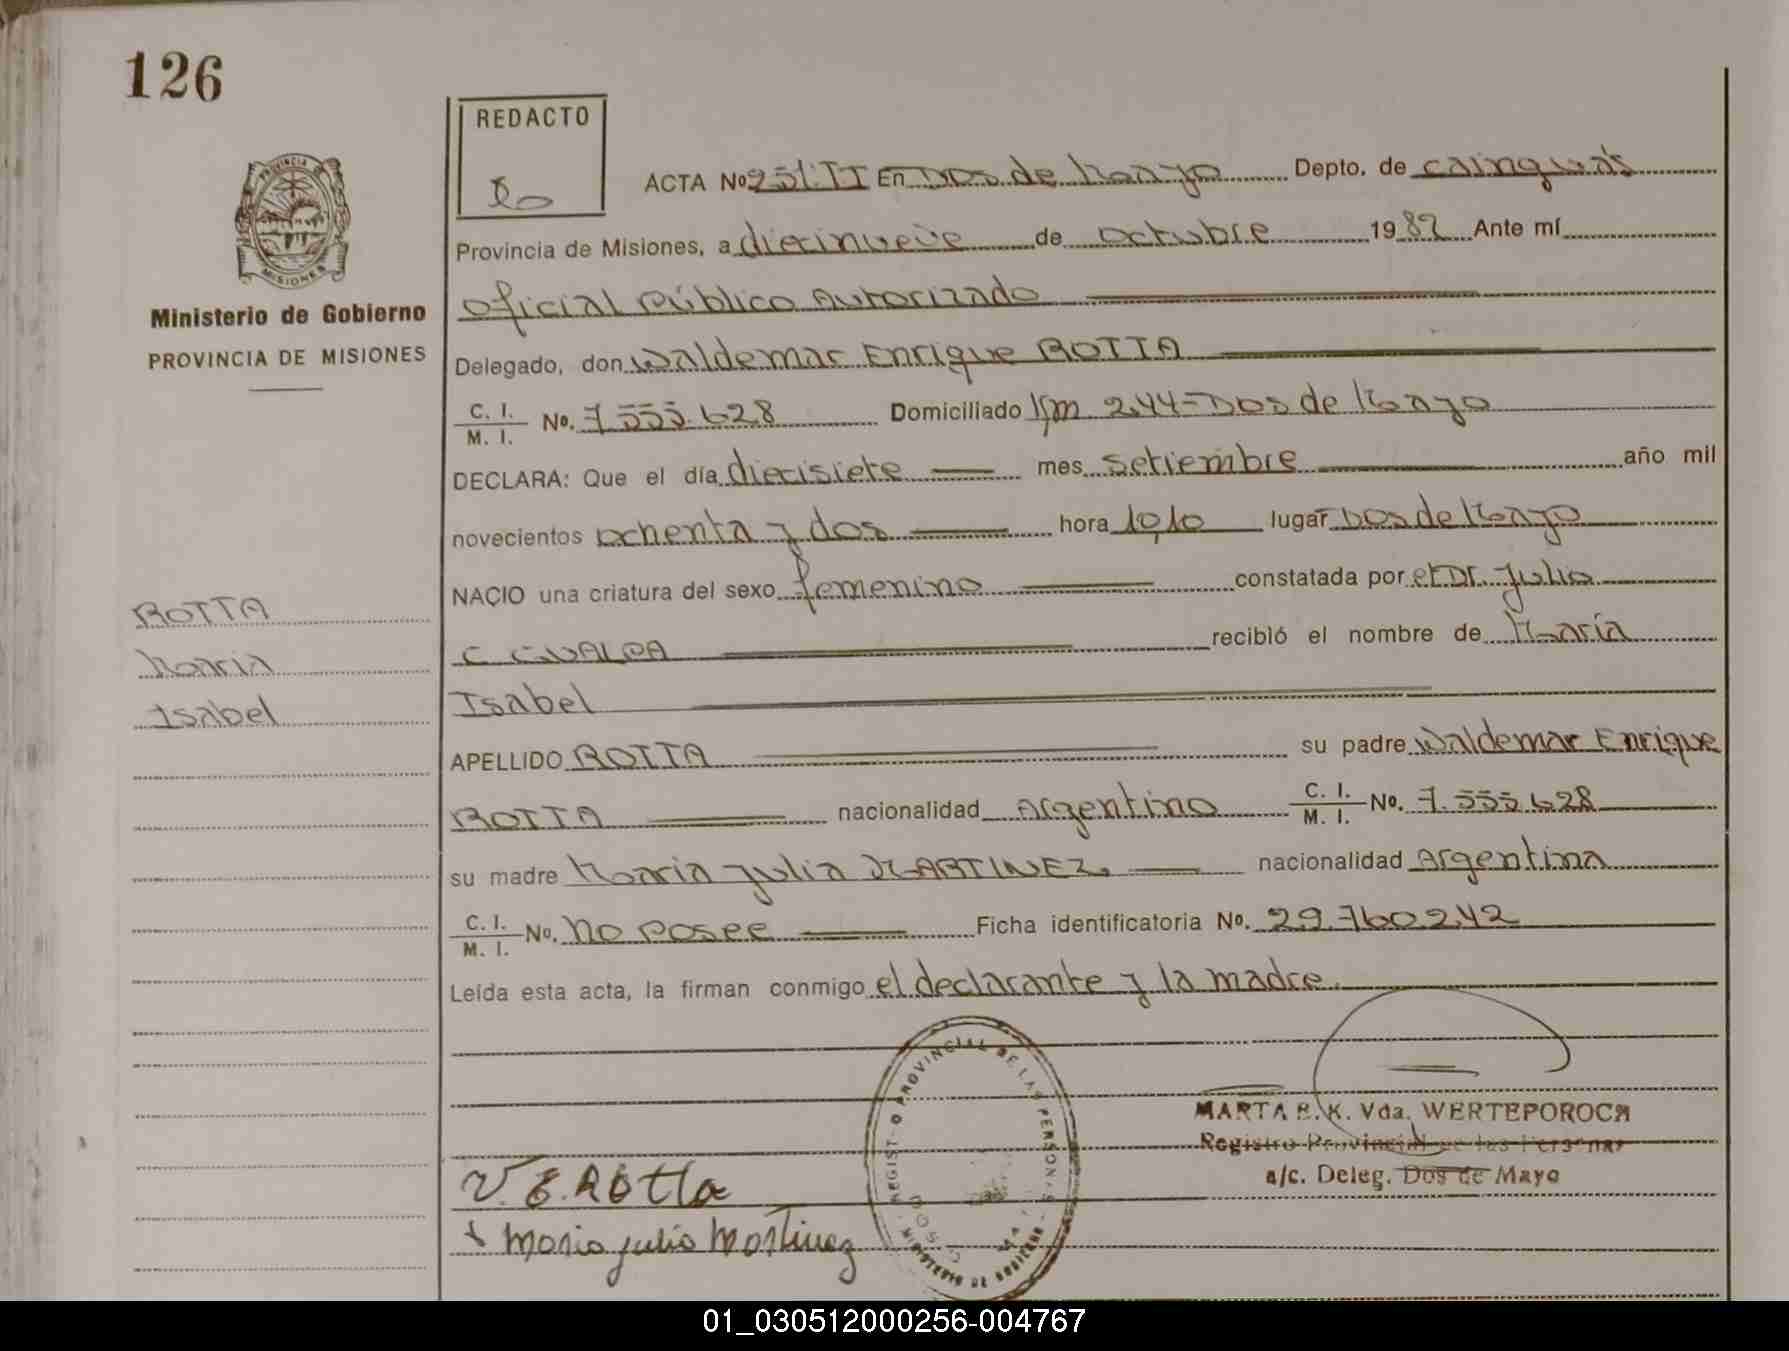 126
REDACTO
ACTA Nº 251.II En Dos de Mayo Depto. de Cainguás
Provincia de Misiones, a diecinueve de octubre 1982 Ante mí
Oficial Público Autorizado
Delegado, don Waldemar Enrique ROTTA
C. I.
M. I.
Nº. 7.555.628 Domiciliado Km 244-Dos de Mayo
DECLARA: Que el día diecisiete mes setiembre año mil
novecientos ochenta y dos hora 10,10 lugar Dos de Mayo
NACIO una criatura del sexo femenino constatada por el Dr. Julio
C GUALPA recibió el nombre de María
Isabel
APELLIDO ROTTA su padre Waldemar Enrique
ROTTA nacionalidad Argentino C. I.
M. I.
Nº. 7.555.628
su madre María Julia MARTINEZ. nacionalidad Argentina
C. I.
M. I.
Nº. no posee Ficha identificatoria Nº. 29.760.242
Leída esta acta, la firman conmigo el declarante y la madre.
PROVINCIA
MISIONES
Ministerio de Gobierno
PROVINCIA DE MISIONES
ROTTA
María
Isabel
REGISTRO PROVINCIAL DE LAS PERSONAS
MINISTERIO DE GOBIERNO
MARTA B. K. Vda. WERTEPOROCH
Registro Provincial de las Personas
a/c. Deleg. Dos de Mayo
W. E. Rotta
Maria Julia Martinez
01_030512000256-004767